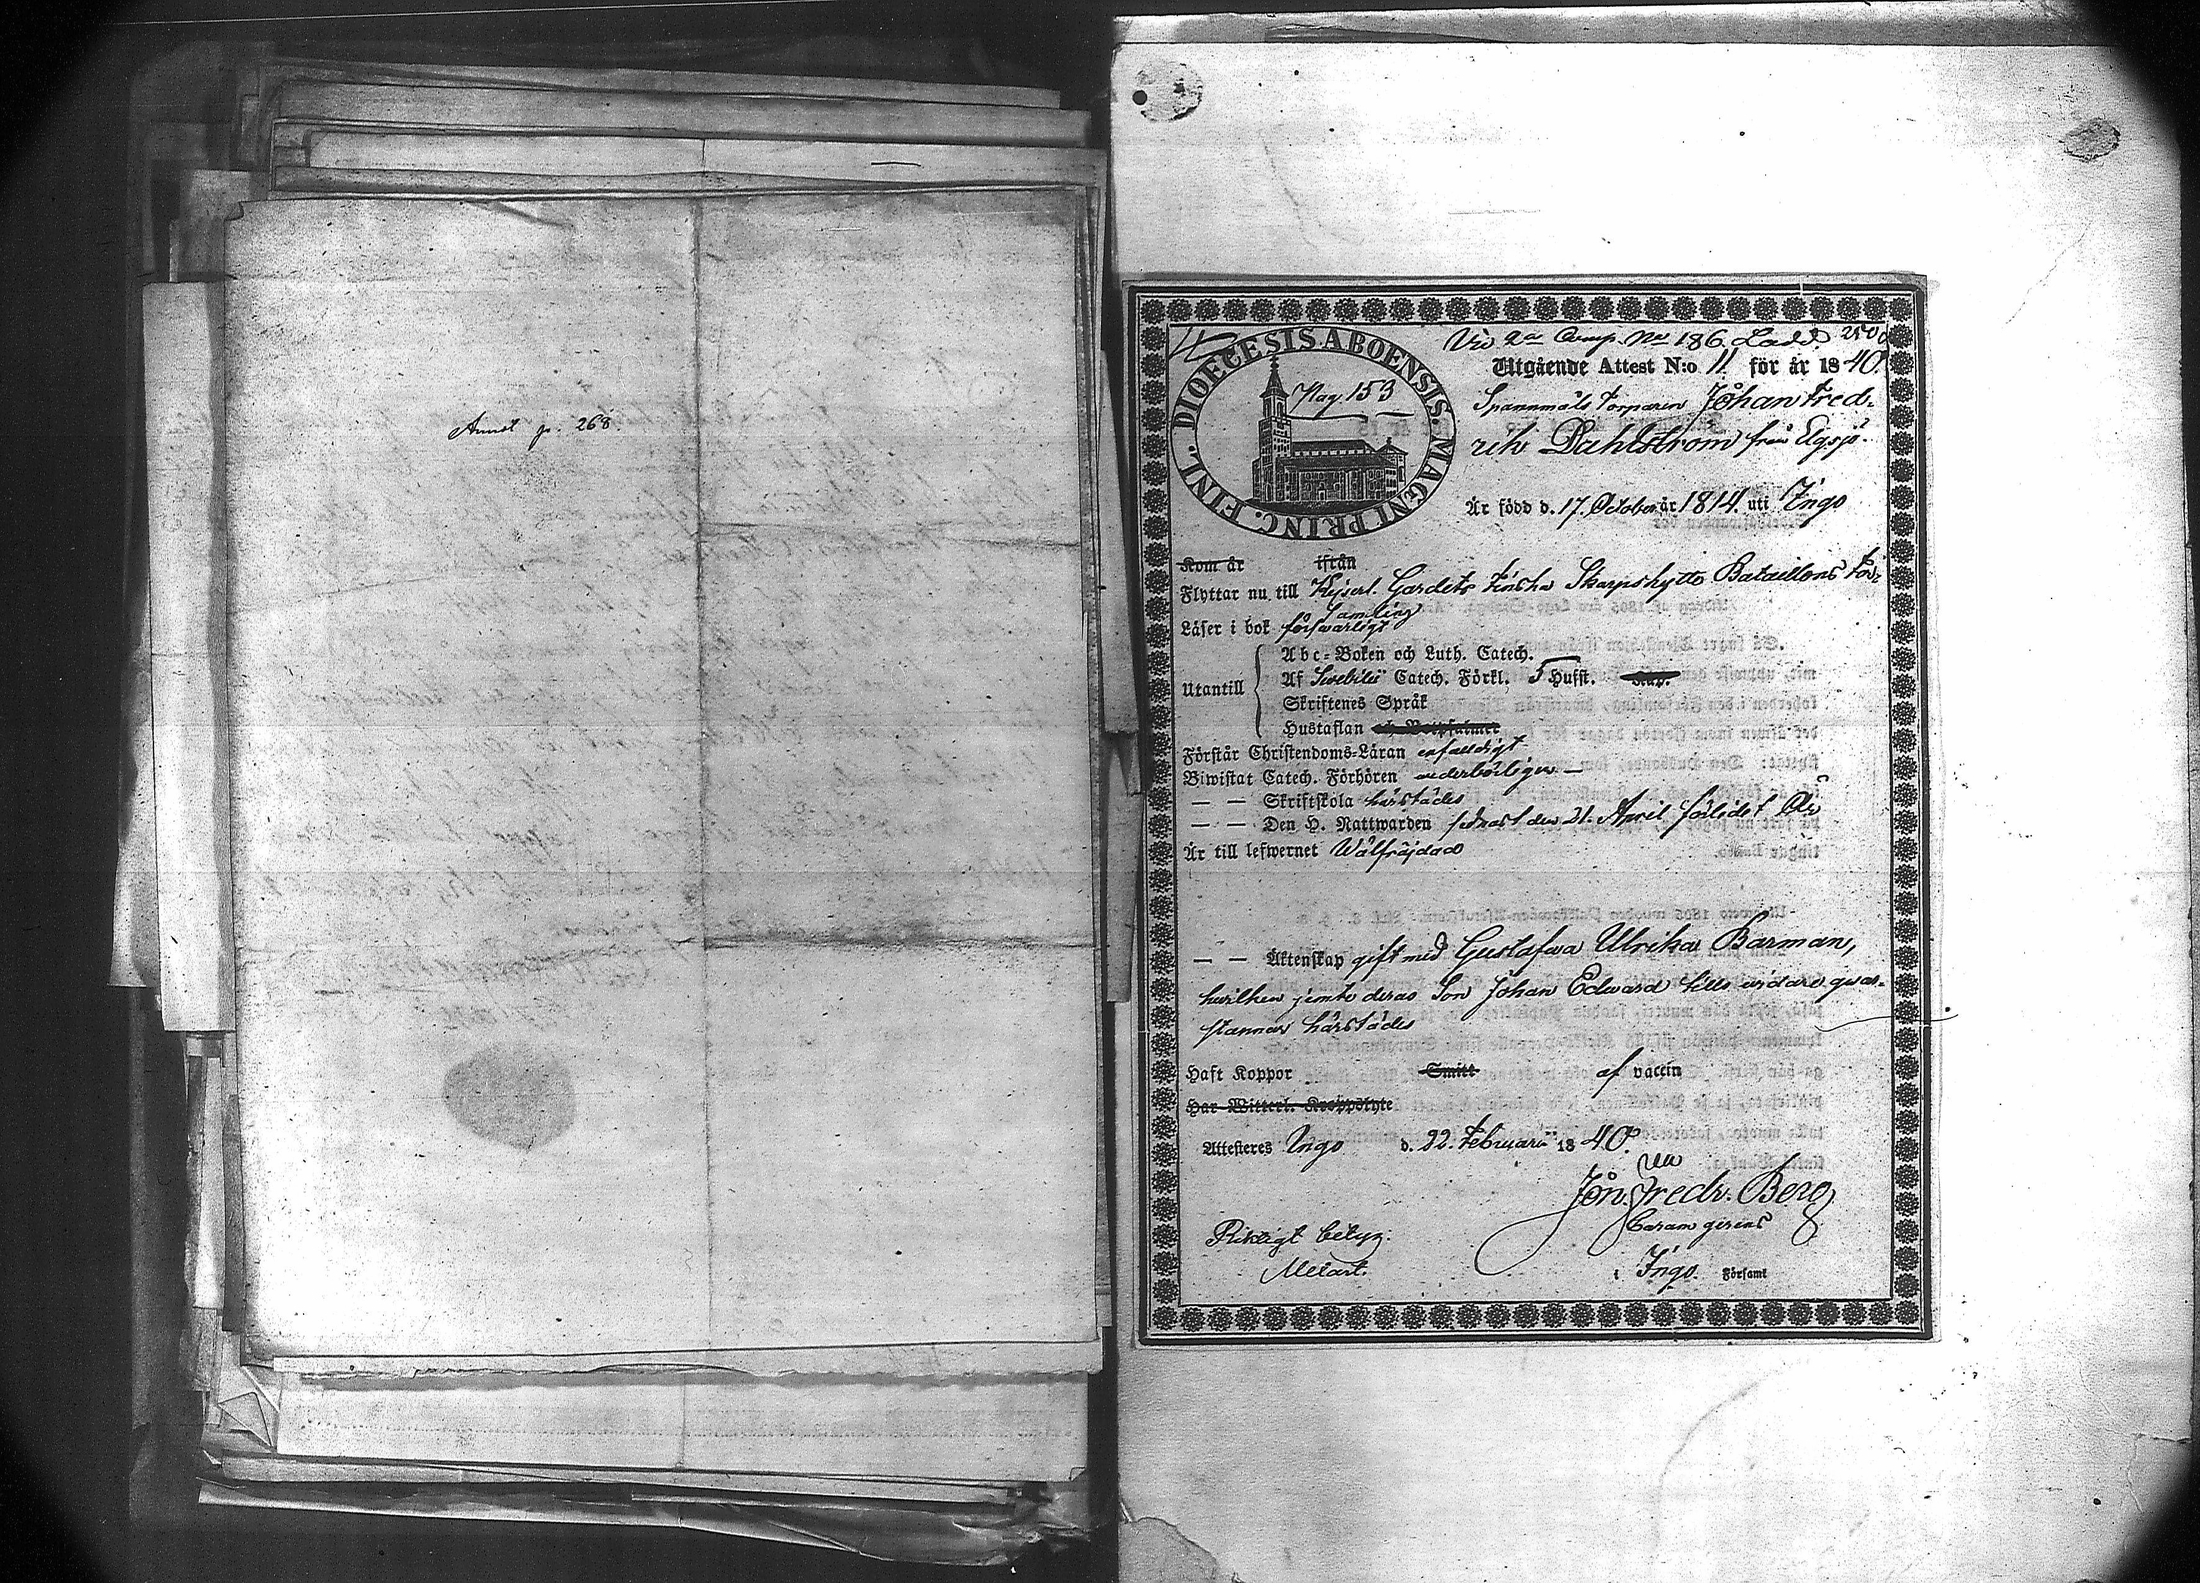 Annot p. 268.
DIOECESIS ABOENSIS. MAGNI PRINC. FINL.
Pag. 153
Vid 2dra Comp. No 186. Ladd
Utgående Attest N:o 11 för år 1840.
Spannmåls torparen Johan Fred-
rik Dahlström från Elgsjö.
Är född d. 17. October år 1814. uti Ingo
Kom år ifrån
Flyttar nu till Kejserl. Gardets Finska Skarpskytte Bataillons För-
samling
Läser i bok försvarligt
Utantill
Abc-Boken och Luth. Catech.
Af Svebilii Catech. Förkl. 5 Hufst. Kap.
Skriftenes Språk
Hustaflan och Botpsalmer
Förstår Christendoms-Läran enfaldigt
Biwistat Catech. Förhören vederbörligen —
— — Skriftskola härstädes
— — Den H. Nattwarden sednast den 21. April förlidet År
Är till lefwernet Wälfräjdad
— — Äktenskap gift med Gustafwa Ulrika Barman,
hwilken jemte deras Son Johan Edward tills widare qwar-
stannar härstädes
Haft Koppor Smitt af vaccin
Har Witterl. Kroppslyte
Attesteres Ingo d. 22. Februarii 1840.
Joh. Fredr. Berg
Curam gerens
i Ingo Församl
Riktigt betyg:
Melart.